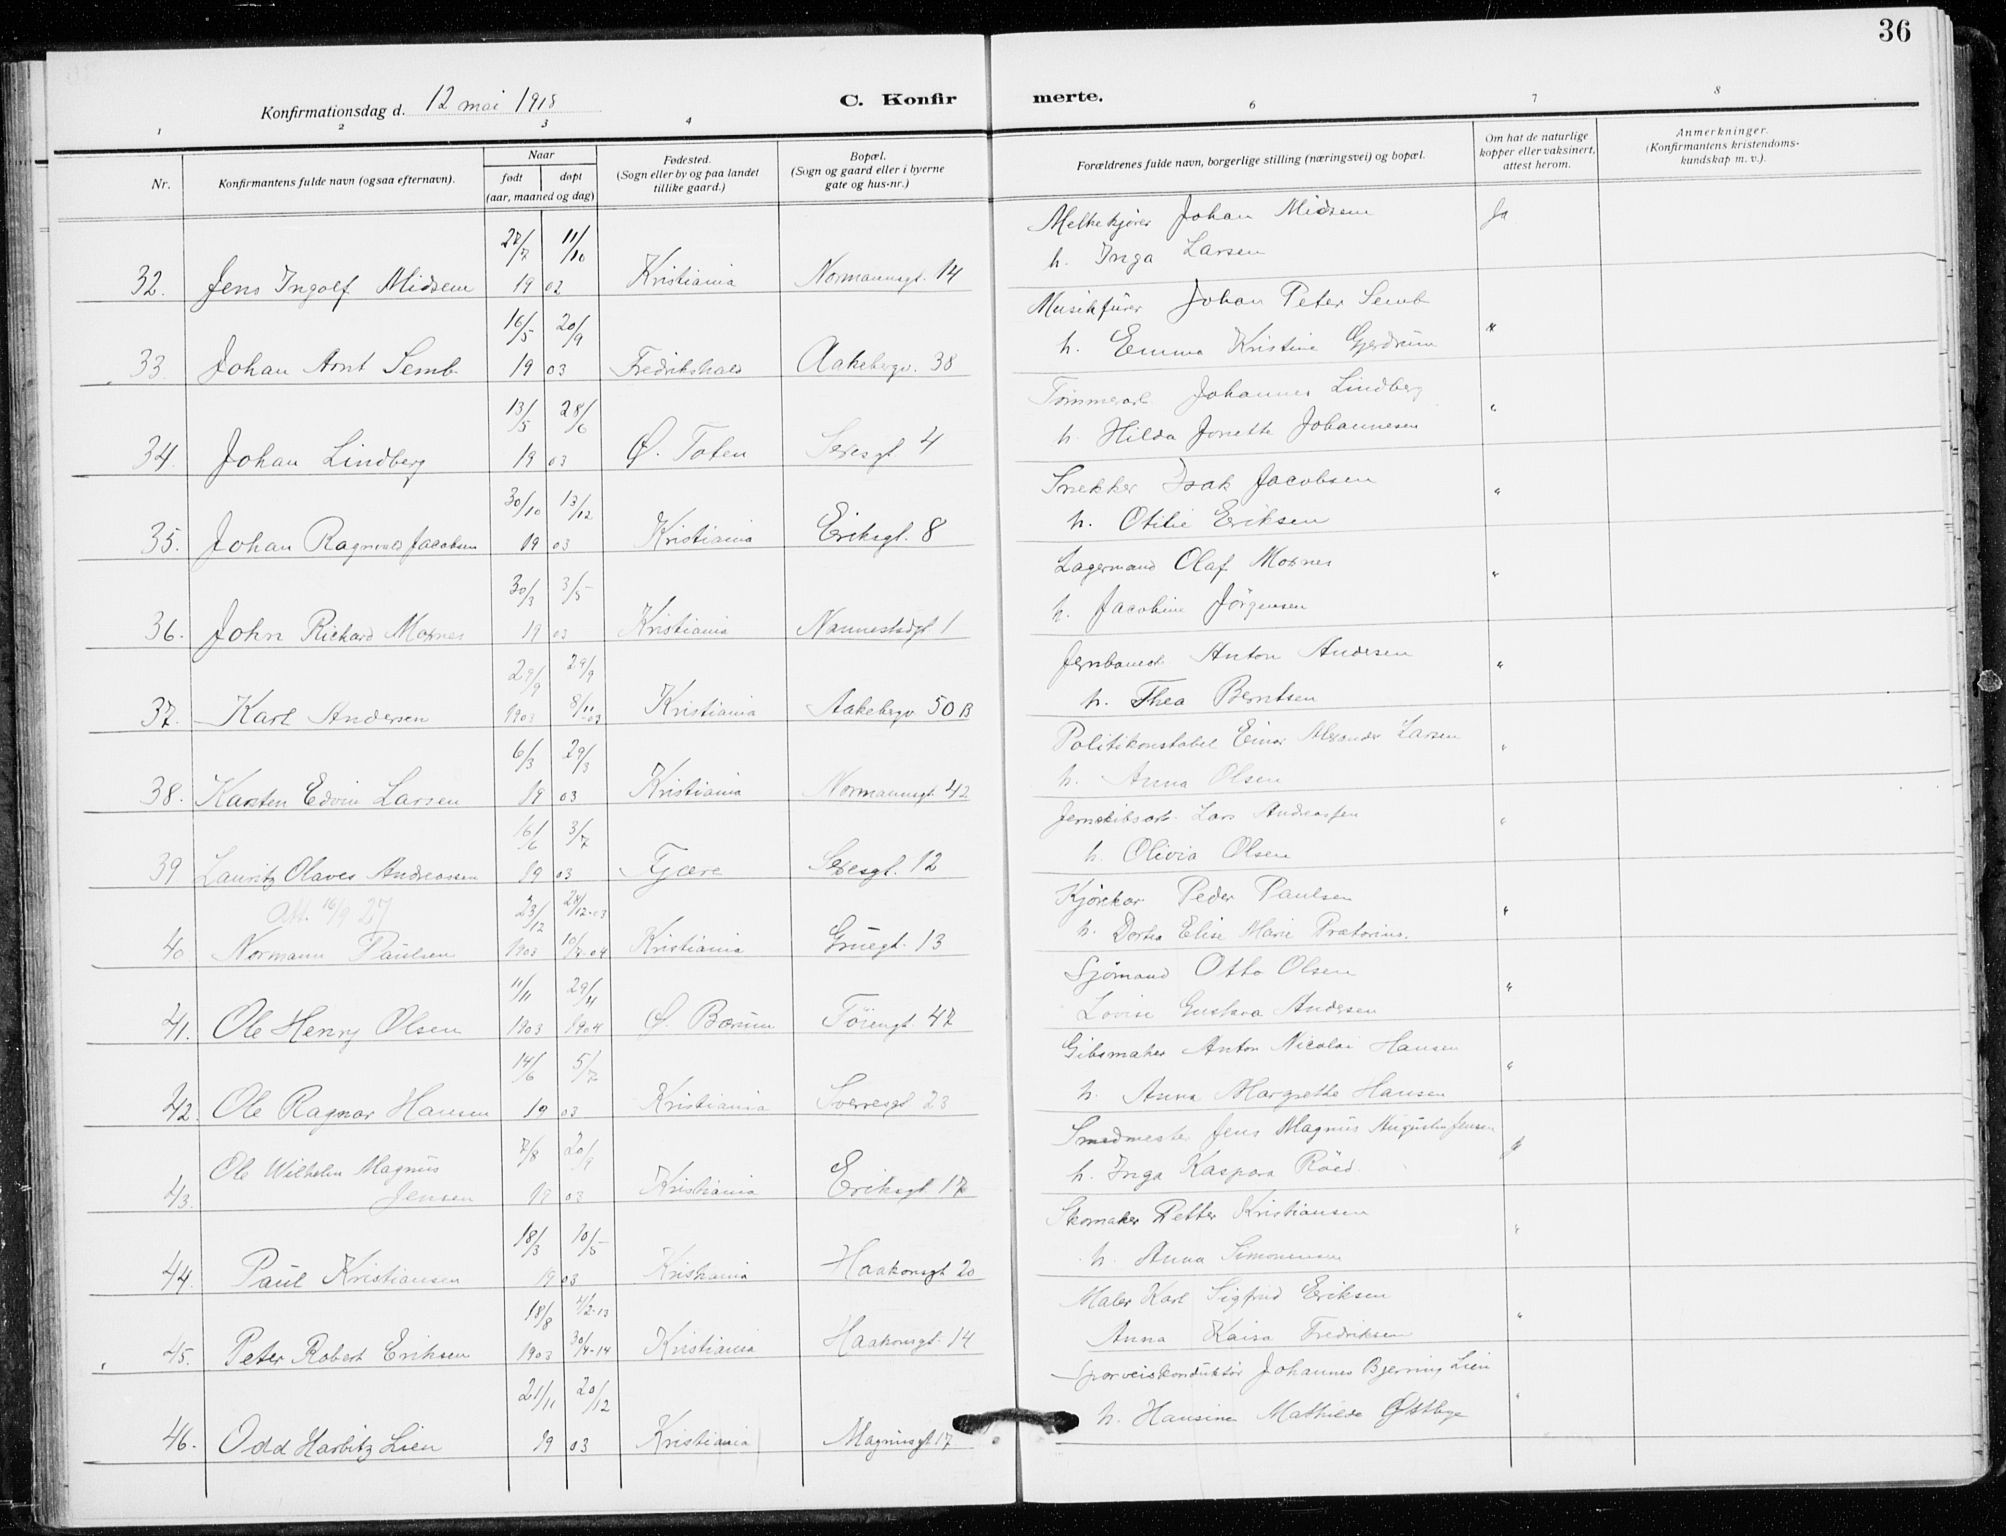 36
Konfirmationsdag d. 12 mai 1918
C. Konfir merte.
1 2 3 4 6 7 8
Nr.
Konfirmantens fulde navn (ogsaa efternavn).
Naar
født døpt
(aar, maaned og dag)
Fødested.
(Sogn eller by og paa landet
tillike gaard.)
Bopæl.
(Sogn og gaard eller i byerne
gate og hus-nr.)
Forældrenes fulde navn, borgerlige stilling (næringsvei) og bopæl.
Om hat de naturlige
kopper eller vaksinert,
attest herom.
Anmerkninger.
(Konfirmantens kristendoms-
kundskap m. v.).
27/7 11/10 Melkekjører Johan Midsem Ja
32. Jens Ingolf Midsem 19 02 Kristiania Normannsgt. 14 h. Inga Larsen
16/5 20/9 Musikfører Johan Peter Semb "
33 Johan Arnt Semb 19 03 Fredrikshald Aakebergv. 38 h. Emma Kristine Gjerdrum
13/5 28/6 Tømmerarb. Johannes Lindberg "
34. Johan Lindberg 19 03 Ø. Toten Sexesgt 4 h. Hilda Jonette Johannesen
30/10 13/12 Snekker Isak Jacobsen "
35. Johan Ragnvald Jacobsen 19 03 Kristiania Eriksgt. 8 h. Otilie Eriksen
30/3 3/5 Lagermand Olaf Moxnes "
36. John Richard Moxnes 19 03 Kristiania Nannestadgt 1 h. Jacobine Jörgensen
29/9 29/9 Jernbanest Anton Andersen "
37. Karl Andersen 1903 8/11-03 Kristiania Aakebergv 50 B h. Thea Berntsen
6/3 29/3 Politikonstabel Einar Alexander Larsen "
38. Karsten Edvin Larsen 19 03 Kristiania Normannsgt 42 h. Anna Olsen
16/6 3/7 Jernskibsarb. Lars Andreassen "
39 Lauritz Olaves Andreassen 19 03 Fjære Sexesgt. 12 h. Olivia Olsen
Att. 16/9 27 23/12 24/12-03 Kjørekar Peder Paulsen "
40 Normann Paulsen 1903 10/4-04 Kristiania Gruegt. 13 h. Dortea Elise Marie Prætorius.
11/11 29/11 Sjömand Otto Olsen "
41. Ole Henry Olsen 1903 1904 Ø. Bærum Töiengt. 47 Lovise Gustava Andersen
14/6 5/7 Gibsmaker Anton Nicolai Hansen "
42. Ole Ragnar Hansen 19 03 Kristiania Sverresgt 23 h. Anna Margrethe Hansen
Ole Wilhelm Magnus 7/8 20/9 Smedmester Jens Magnus Augustin Jensen "
43. Jensen 19 03 Kristiania Eriksgt. 17 h. Inga Kaspara Röed.
18/3 10/5 Skomaker Petter Kristiansen "
44. Paul Kristiansen 19 03 Kristiania Haakonsgt 20 h. Anna Simonensen
18/8 4/2-13 Maler Karl Sigfrid Eriksen "
45. Peter Robert Eriksen 1903 30/4-14 Kristiania Haakonsgt. 14 Anna Kaisa Fredriksen
21/11 20/12 Sporveiskonduktör Johannes Bjerning Lien "
46. Odd Harbitz Lien 19 03 Kristiania Magnusgt 17 h. Hansine Mathilde Østbye